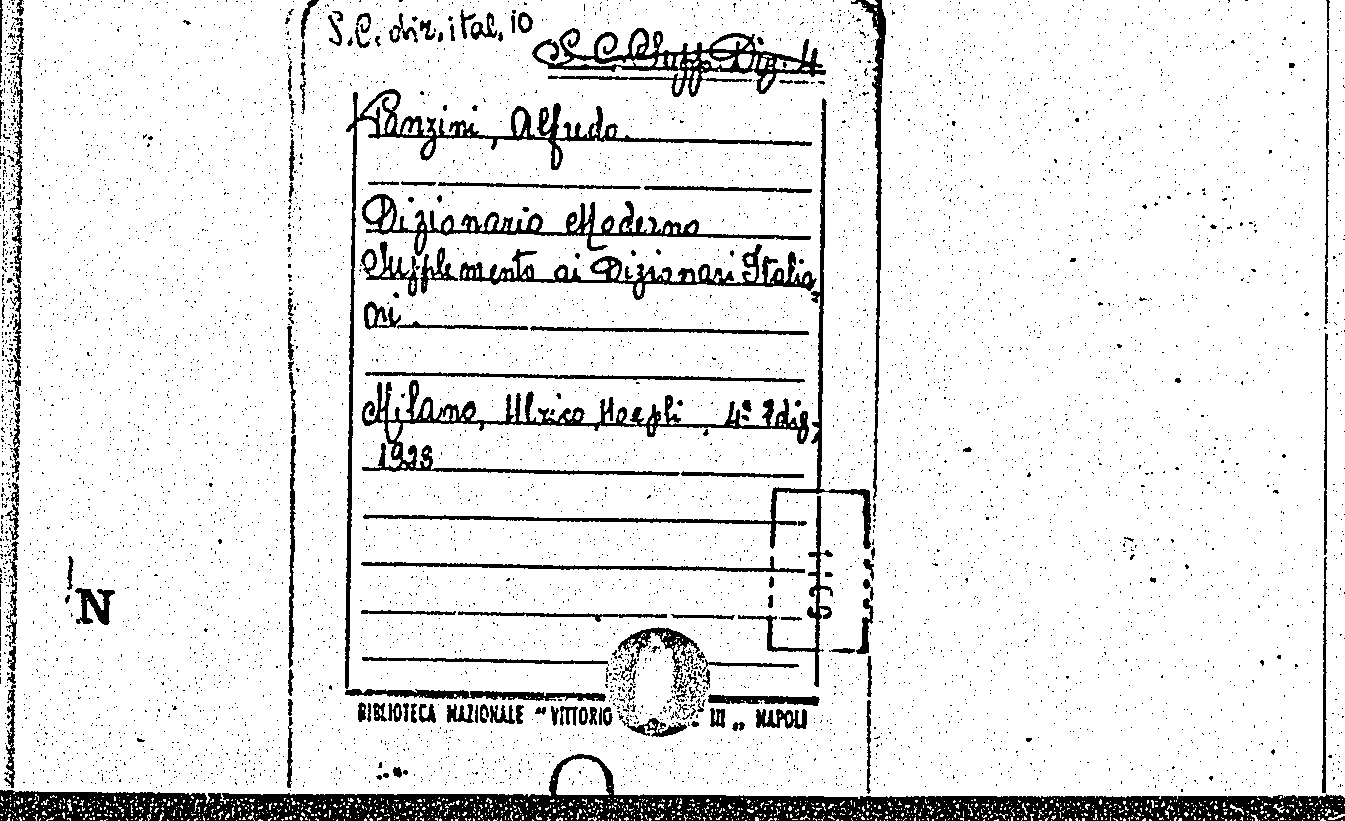 S.C. diz. ital. 10
S. C. Supp. Diz. 4
Panzini, Alfredo.
Dizionario Moderno
Supplemento ai Dizionari Italia„
ni.
Milano, Ulrico Hoepli, 4ª Ediz,
1923
N
BIBLIOTECA NAZIONALE “ VITTORIO III „ NAPOLI